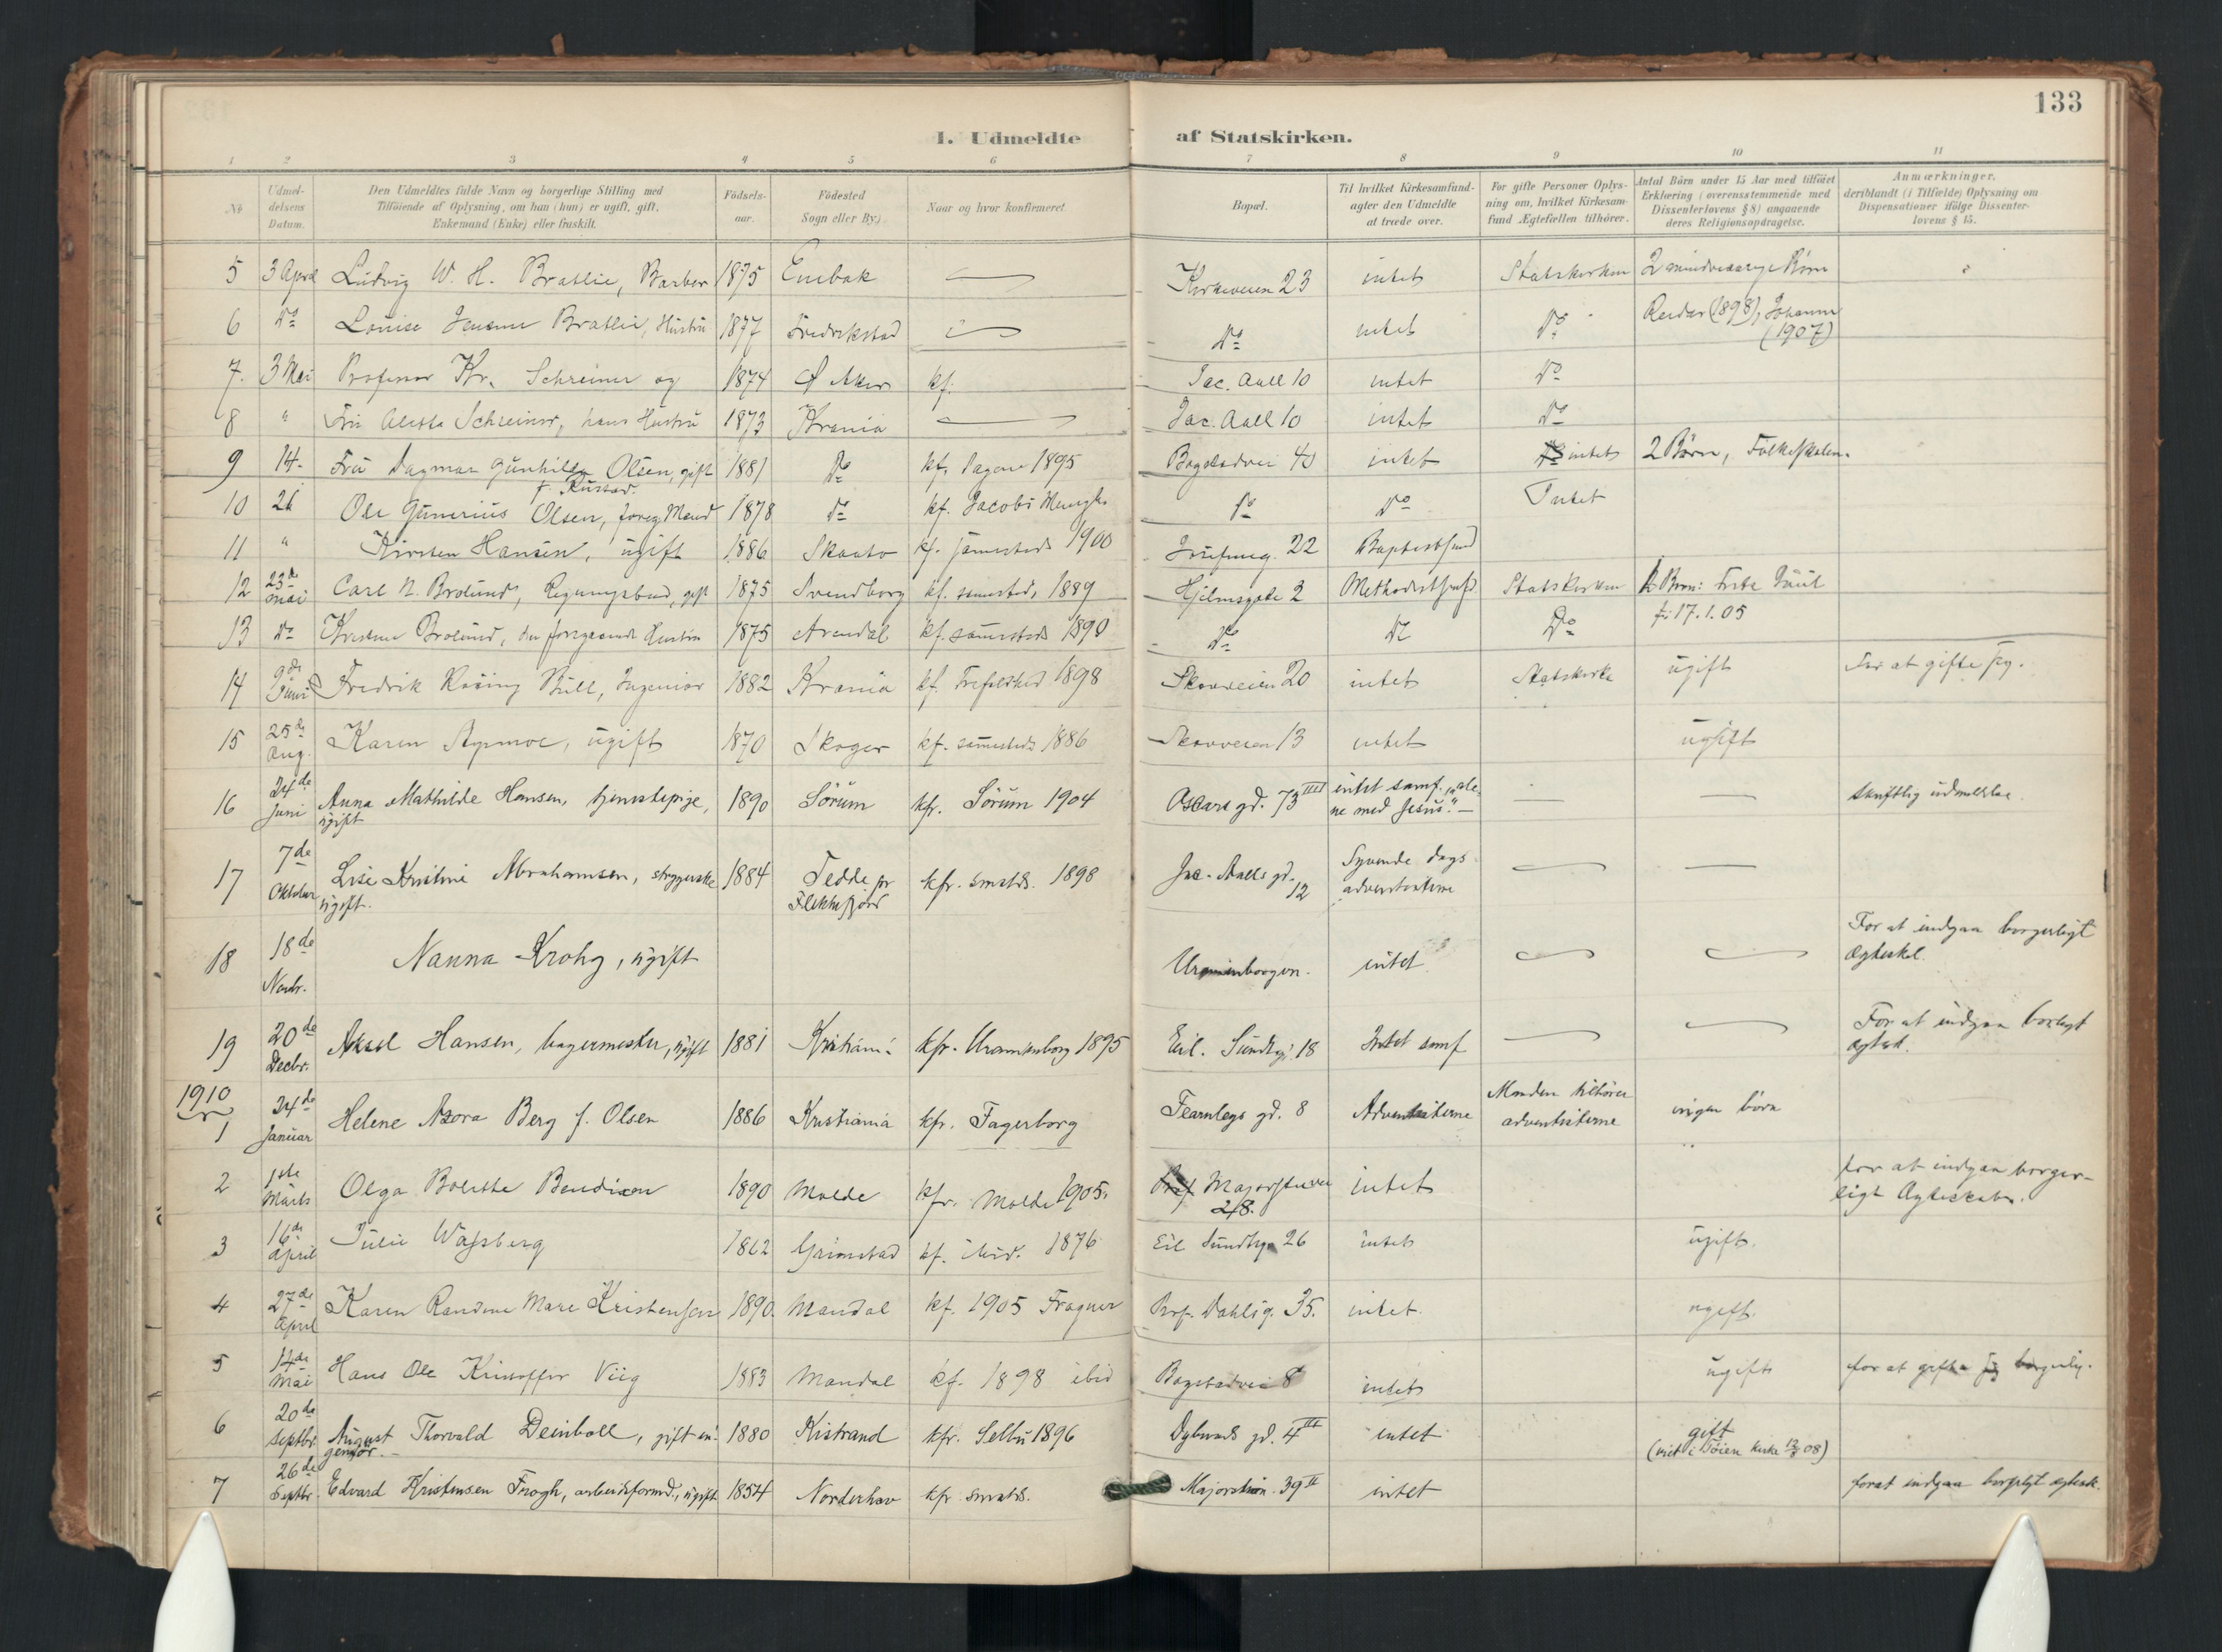 133
1. Udmeldte af Statskirken.
1 2 3 4 5 6 7 8 9 10 11
No
Udmeldelsens Datum.
Den Udmeldtes fulde Navn og borgerlige Stilling med Tilföiende af Oplysning, om han (hun) er ugift, gift, Enkemand (Enke) eller fraskilt.
Födselsaar.
Födested Sogn eller By.
Naar og hvor konfirmeret
Bopæl.
Til hvilket Kirkesamfund agter den Udmeldte at træde over.
For gifte Personer Oplysning om, hvilket Kirkesamfund Ægtefællen tilhörer.
Antal Börn under 15 Aar med tilföiet Erklæring (overensstemmende med Dissenterlovens § 8) angaaende deres Religionsopdragelse.
Anmærkninger. deriblandt (i Tilfælde) Oplysning om Dispensationer ifölge Dissenterlovens § 15.
5 3 April Ludvig W. H. Bratlie, Barber 1875 Enebak — Kirkeveien 23 intet Statskirken 2 mindreaarige Börn
6 Do Louise Bratlie, Hustru 1877 Fredrikstad — Do intet Do Reidar (1898), Johanne (1907)
7. 3 Mai Professor Kr. Schreiner og 1874 Ø Aker kf. Jac. Aall 10 intet Do
8 " Fru Alette Schreiner, hans Hustru 1873 Krania — Jac. Aall 10 intet Do
9 14. Fru Dagmar Gunhilda Olsen, gift f. Rustad. 1881 Do kf. 1895 intet intet 2 Börn, Folkeskolen.
10 21 Ole Gunerius Olsen, foreg Mand 1878 Do kf. Jacobs Do Do Intet
11 " Kirsten Hansen, ugift 1886 Skaato kf. sammesteds 1900 22
12 23de mai Carl N. Brolund, gift 1875 Svendborg kf. sammesteds 1889 Hjelmsgate 2 Methodistsamf. Statskirken
13 Do Brolund, den foregaaende Hustru 1875 Arendal kf. sammesteds 1890 Do Do Do f: 17.1.05
14 9de Juni Fredrik Rosing Bull, Ingeniör 1882 Krania kf. Trefoldhed 1898 Skovveien 20 intet Statskirke ugift For at gifte sig.
15 25de Aug. Karen ugift 1870 Skoger kf. sammesteds 1886 Skovveien 13 intet ugift
16 24de Juni Anna Mathilde Hansen, tjenestepige, ugift 1890 Sörum kfr. Sörum 1904 Oscars gd. 73 IIII intet samf. "alene med Jesus". — — — skriftlig udmeldelse.
17 7de Oktober Lise Kristine Abrahamsen, strygerske ugift. 1884 Fedde pr Flekkefjord kfr. smstds. 1898 Jac. Aalls gd. 12 Syvende dags adventisterne — —
18 18de Novbr. Nanna Krohg, ugift Uranienborgvn. intet — — For at indgaa borgerligt ægteskl.
19 20de Decbr. Aksel Hansen, bagermester, ugift 1881 Kristiania kfr. Uranienborg 1895 Eil. Sundtsgd. 18 Intet samf — — For at indgaa
1910
1 24de Januar Helene Azora Berg f. Olsen 1886 Kristiania kfr. Fagerborg Fearnleys gd. 8 Adventisterne Manden tilhörer adventisterne ingen börn
2 1ste Marts Olga Bolette Bendixen 1890 Molde kfr. Molde 1905. Majorstuvei 28. intet for at indgaa borgerligt Ægteskab.
3 16de April Julie Wassberg 1862 Grimstad kf. ibid. 1876 Eil Sundtsgd 26 intet ugift.
4 27de April Karen Randine Marie Kristensen 1890. Mandal kf. 1905 Frogner Prof. Dahlsg. 35. intet. ugift.
5 14de Mai Hans Ole Kristoffer Viig 1883 Mandal kf. 1898 ibid Bogstadvei 8 intet ugift for at gifte sig borgerlig.
6 20de Septbr. August Thorvald Deinboll, gift ingeniör. 1880 Kistrand kfr. Selbu 1896 Dybwads gd. 4 III intet gift (viet i Töien kirke 08)
7 26de Septbr. Edvard Kristensen Frogh, arbeidsformd., ugift 1854 Norderhov kfr smstds. Majorstuvn. 39 II intet forat indgaa borgerligt ægtesk.